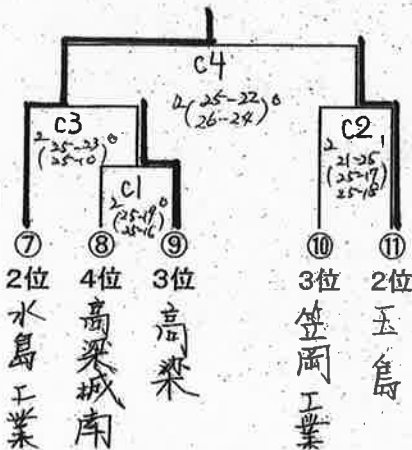 C4
2(25-22
26-24)0
C3
2(25-23
25-10)0
C2
2(21-25
25-17
25-18)1
C1
2(25-19
25-16)0
⑦ ⑧ ⑨ ⑩ ⑪
2位 4位 3位 3位 2位
水島工業
高梁城南
高梁
笠岡工業
玉島